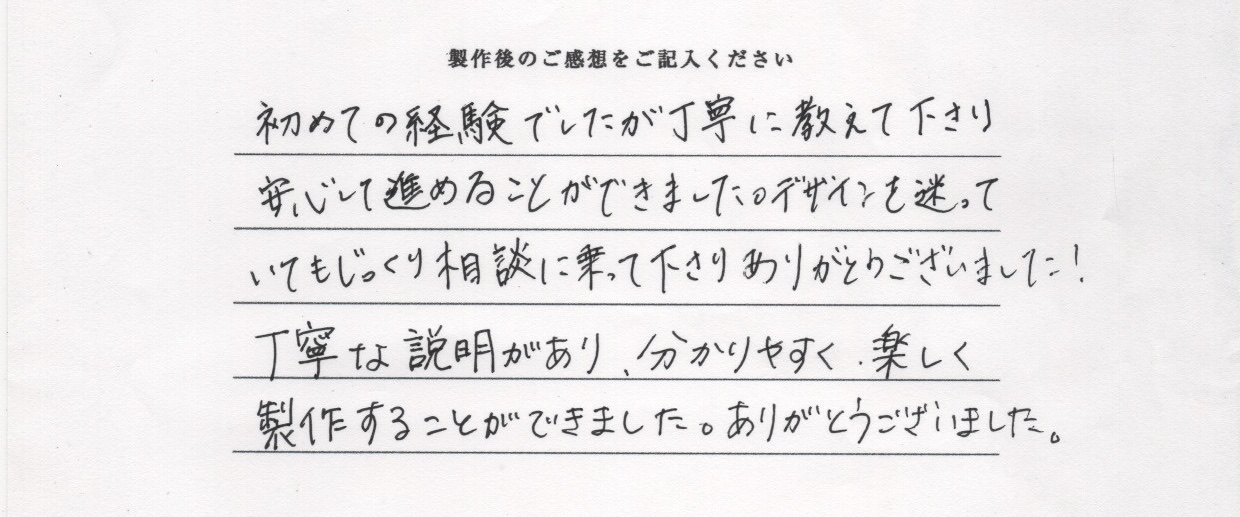 製作後のご感想をご記入ください
初めての経験でしたが丁寧に教えて下さり
安心して進めることができました。デザインを迷って
いてもじっくり相談に乗って下さりありがとうございました!
丁寧な説明があり、分かりやすく、楽しく
製作することができました。ありがとうございました。